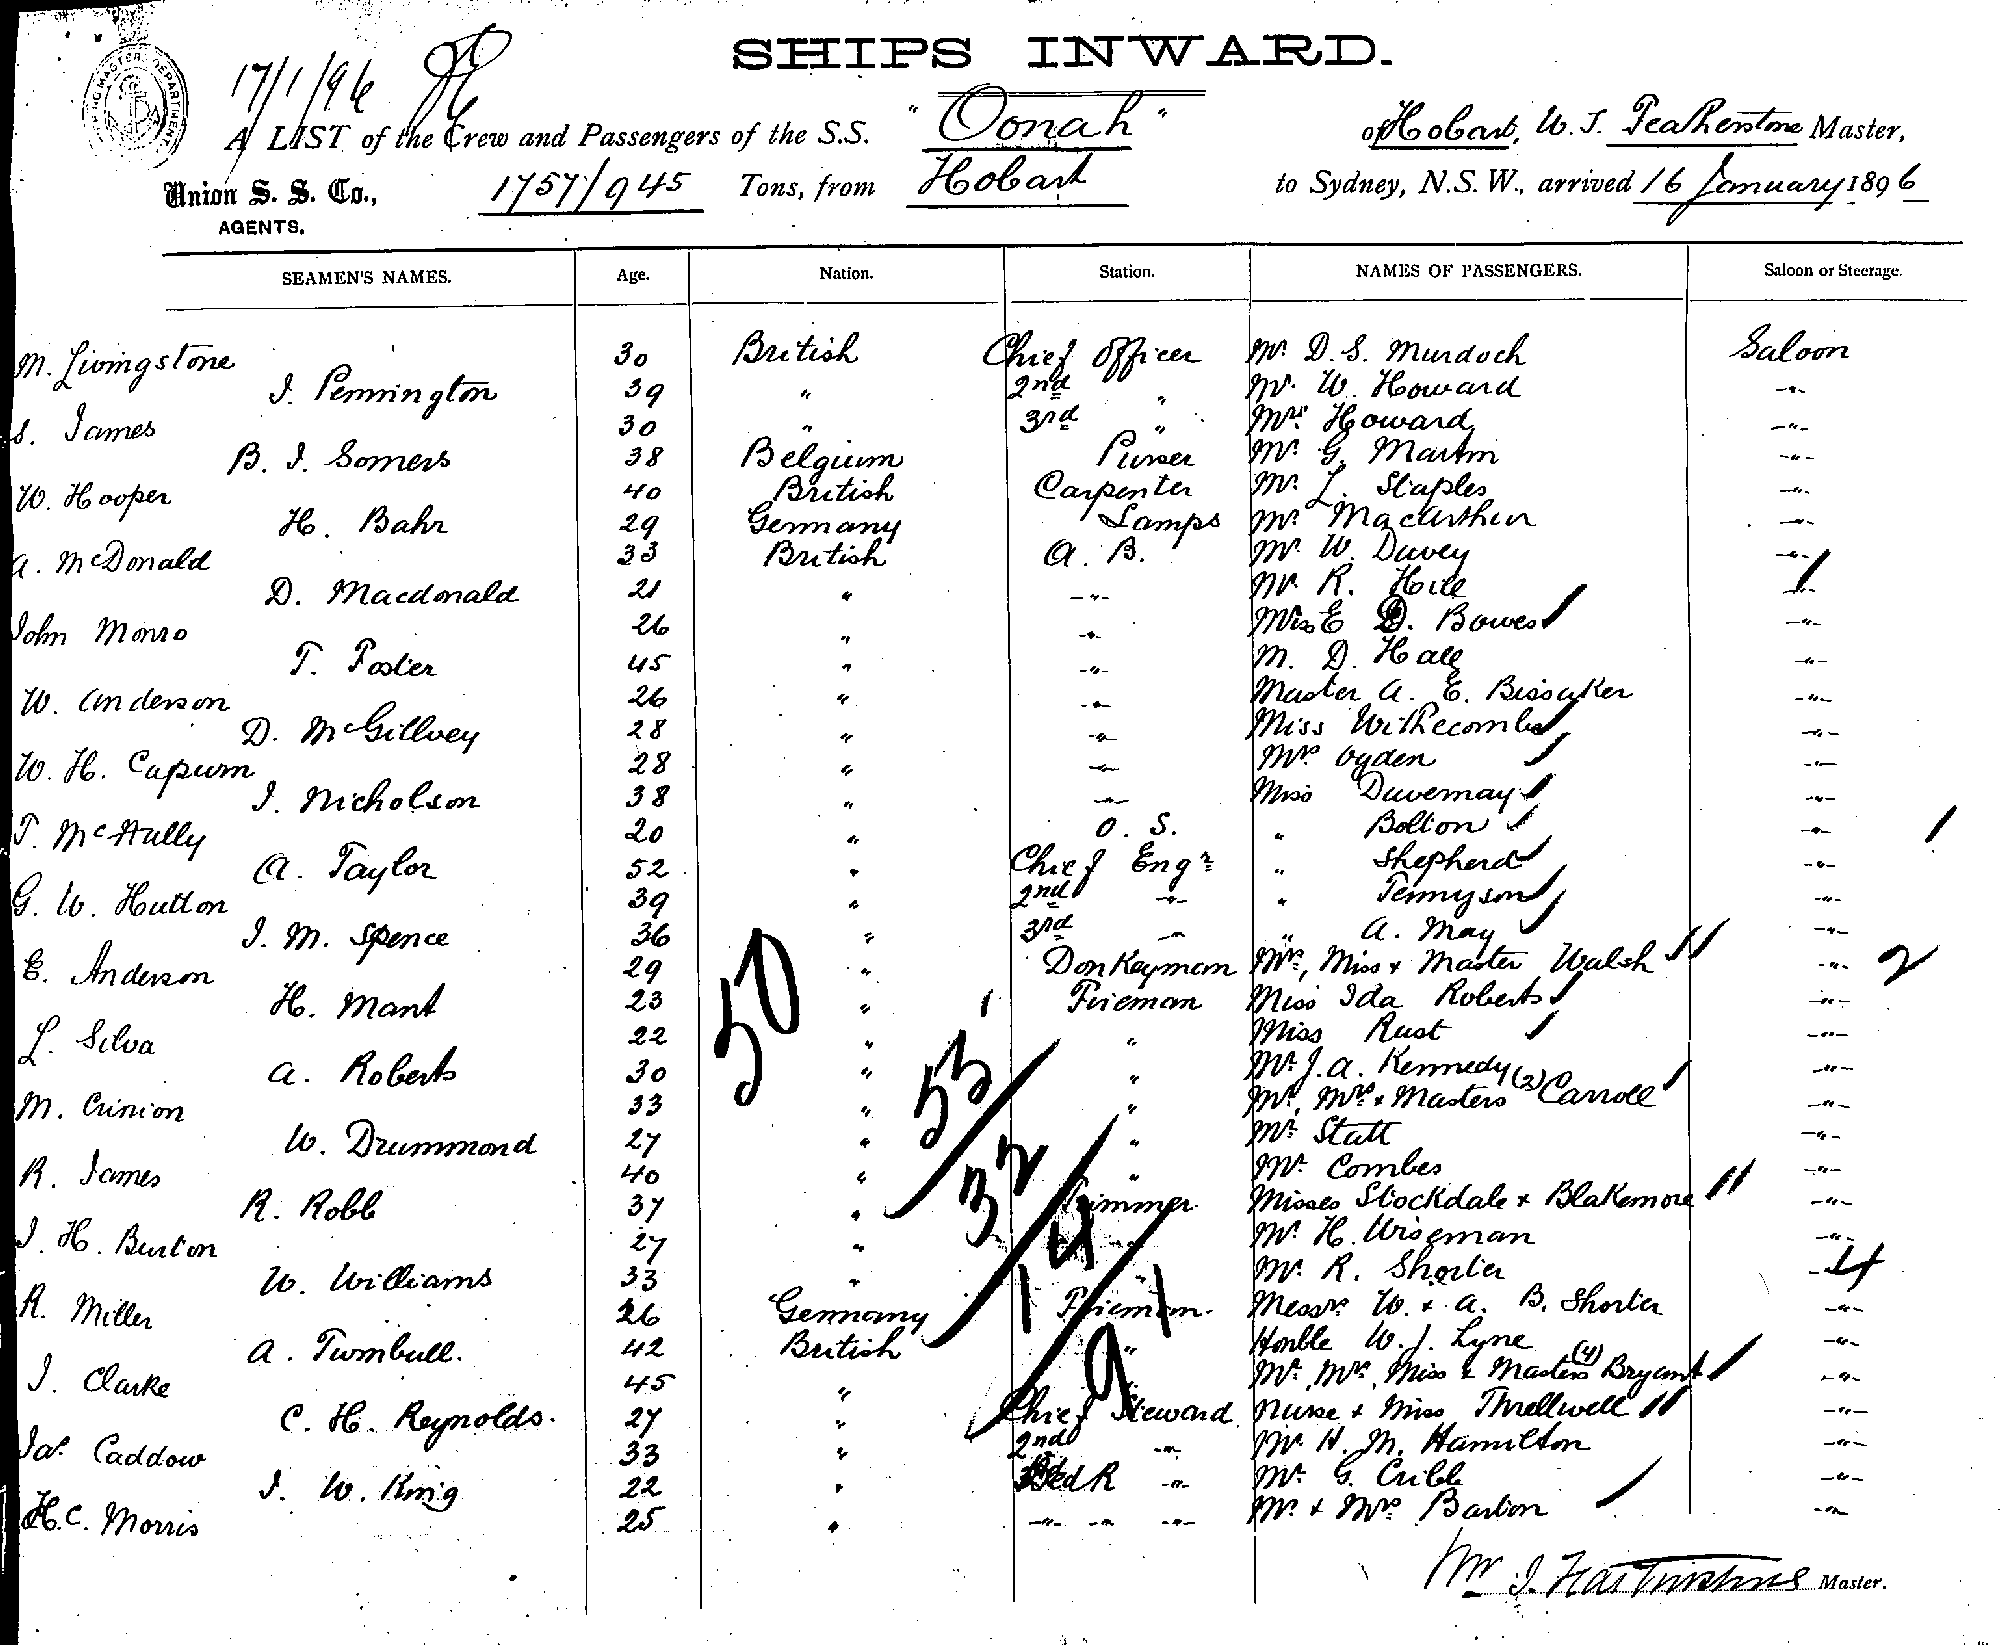 SHIPS INWARD.
17/1/96
A LIST of the Crew and Passengers of the S.S. "Oonah" of Hobart, W. J. Featherstone Master,
Union S. S. Co., 1757/945 Tons, from Hobart to Sydney, N.S.W., arrived 16 January 1896
AGENTS.
SEAMEN'S NAMES. Age. Nation. Station. NAMES OF PASSENGERS. Saloon or Steerage.
M. Livingstone 30 British Chief Officer Mr. D. S. Murdoch Saloon
J. Pennington 39 " 2nd " Mr. W. Howard -"-
S. James 30 " 3rd " Mrs. Howard -"-
B. J. Somers 38 Belgium Purser Mr. G. Martin -"-
W. Hooper 40 British Carpenter Mr. L. Staples -"-
H. Bahr 29 Germany Lamps Mr. Macarthur -"-
A. McDonald 33 British A. B. Mr. W. Duvey -"-
D. Macdonald 21 " -"- Mr. R. Hill -"-
John Monro 26 " -"- Miss E D. Bowes -"-
T. Foster 45 " -"- M. D. Hall -"-
W. Anderson 26 " -"- Master A. E. Bissaker -"-
D. McGillvey 28 " -"- Miss Withecombe -"-
W. H. Capurn 28 " -"- Mrs. Ogden -"-
J. Nicholson 38 " -"- Miss Duvernay -"-
T. McAully 20 " O. S. " Bolton -"- 1
A. Taylor 52 " Chief Engr " Shepherd -"-
G. W. Hutton 39 " 2nd -"- " Tennyson -"-
J. M. Spence 36 " 3rd -"- " A. May -"-
E. Anderson 29 " Donkeyman Mrs, Miss + Master Walsh -"- 2
H. Mant 23 " Fireman Miss Ida Roberts -"-
L. Silva 22 " " Miss Rust -"-
A. Roberts 30 " " Mr. J. A. Kennedy -"-
M. Crinion 33 " " Mr, Mrs. + Masters (2) Carroll -"-
W. Drummond 27 " " Mr. Statt -"-
R. James 40 " " Mr. Combes -"-
R. Robb 37 " Trimmer Misses Stockdale + Blakemore -"-
J. H. Burton 27 " Mr. H. Wiseman -"-
W. Williams 33 " " Mr. R. Shorter -"- 4
R. Miller 26 Germany Fireman Messrs W. + A. B. Shorter -"-
A. Turnbull. 42 British " Honble W. J. Lyne -"-
J. Clarke 45 " Mr., Mrs, Miss + Masters (4) Bryant -"-
C. H. Reynolds. 27 " Chief Steward Nurse + Miss Threllwell -"-
Jas. Caddow 33 " 2nd -"- Mr. H. M. Hamilton -"-
J. W. King 22 " Bed R -"- Mr. G. Cribb -"-
H.C. Morris 25 " -"- -"- -"- Mr. + Mrs. Barton -"-
50
53
32
14
9
Master.